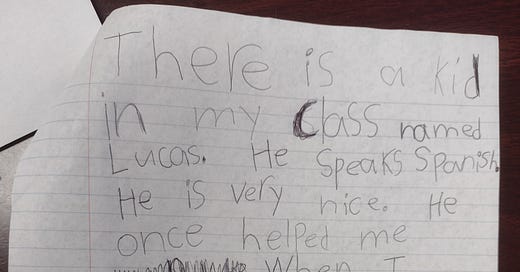 There is a kid
in my Class named
Lucas. He Speaks Spanish.
He is very nice. He
once helped me
When I